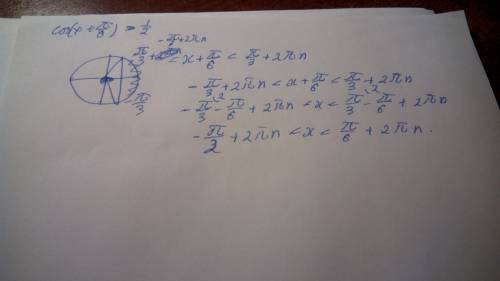 cos(x + π/6) > 1/2
-π/3 + 2πn < x + π/6 < π/3 + 2πn
π/3
-π/3
-π/3 + 2πn < x + π/6 < π/3 + 2πn
-π/3 - π/6 + 2πn < x < π/3 - π/6 + 2πn
-π/2 + 2πn < x < π/6 + 2πn.